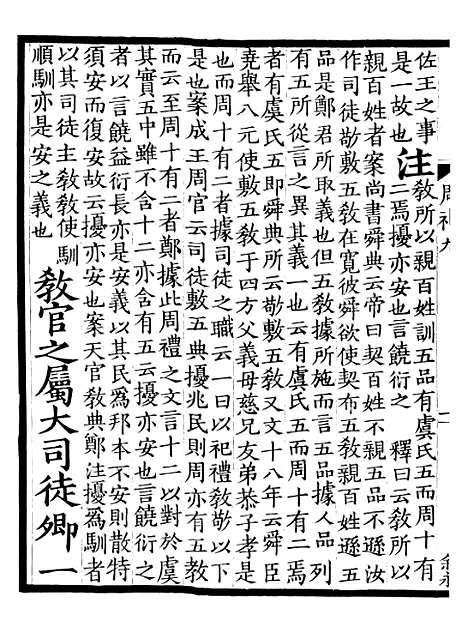 佐王之事
是一故也 注 敎所以親百姓訓五品有虞氏五而周十有
二焉擾亦安也言饒衍之 釋曰云敎所以
親百姓者案尚書舜典云帝曰契百姓不親五品不遜汝
作司徒敬敷五敎在寬彼舜欲使契布五敎親百姓遜五
品是鄭君所取義也但五敎據所施而言五品據人品列
有五所從言之異其義一也云有虞氏五而周十有二焉
者有虞氏五卽舜典所云敬敷五敎又文十八年云舜臣
堯舉八元使敷五敎于四方父義母慈兄友弟恭子孝是
也而周十有二者據司徒之職云一曰以祀禮敎敬以下
是也案成王周官云司徒敷五典擾兆民則周亦有五敎
而云至周十有二者鄭據此周禮之文言十二以對於虞
其實五中雖不含十二亦含有五云擾亦安也言饒衍之
者以言饒益衍長亦是安義以其民爲邦本不安則散特
須安而復安故云擾亦安也案天官敎典鄭注擾爲馴者
以其司徒主敎敎使馴
順馴亦是安之義也 敎官之屬大司徒卿一